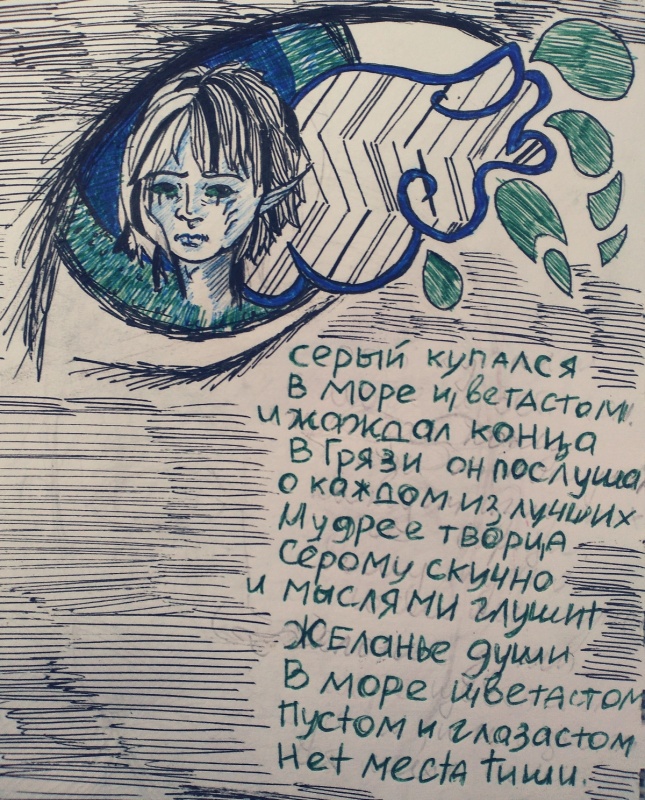 серый купался
в море цветастом
и жаждал конца
в грязи он послуша
о каждом из лучших
Мудрее творца
Серому скучно
и мыслями глушит
Желанье души
В море цветастом
пустом и глазастом
Нет места тиши.